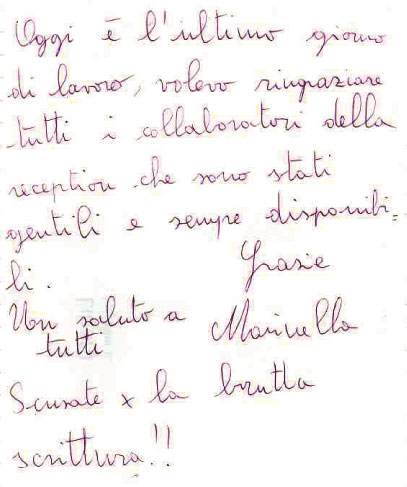 Oggi è l'ultimo giorno
di lavoro, volevo ringraziare
tutti i collaboratori della
reception che sono stati
gentili e sempre disponibi=
li. Grazie
Un saluto a Marinella
tutti
Scusate x la brutta
scrittura!!